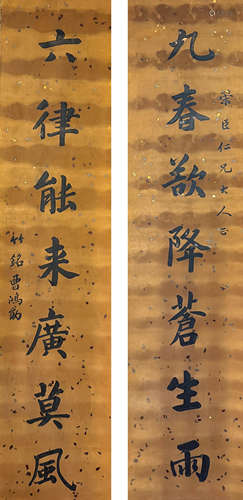 九春歘降蒼生雨
榮臣仁兄大人正
六律能来廣莫風
竹銘曹鴻勛